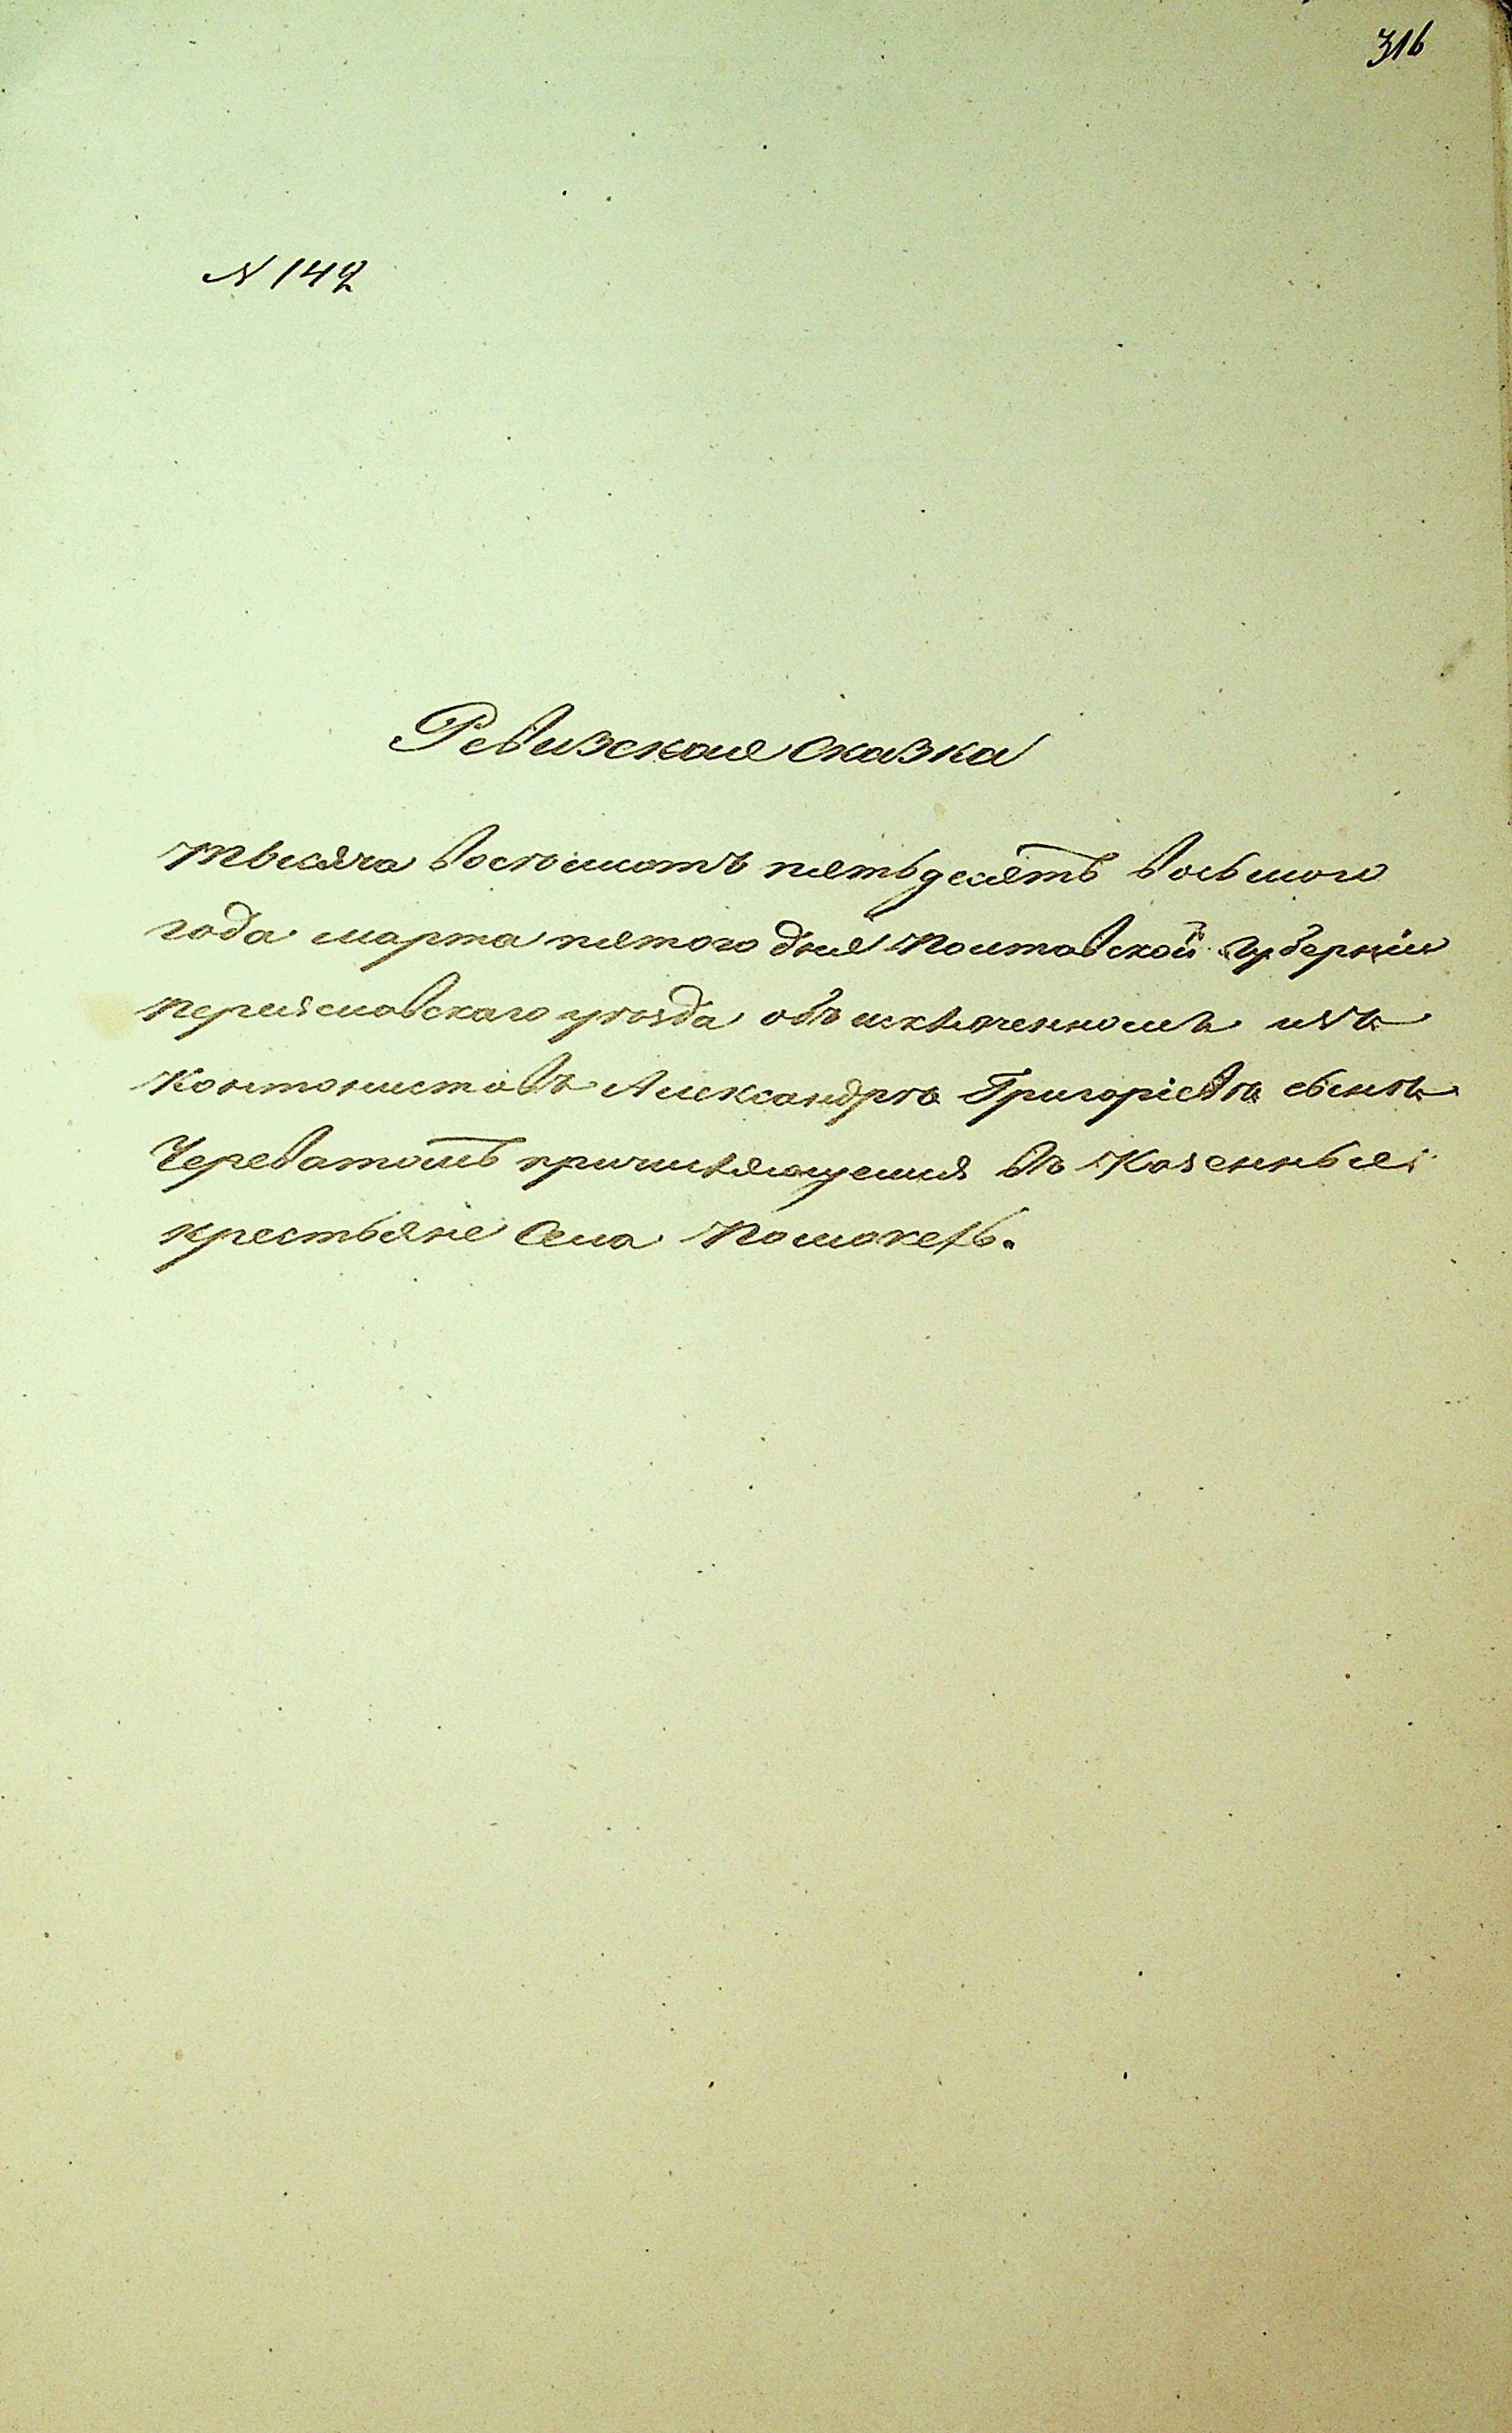 316
N 142
Ревизская сказка
тысяча восемъсотъ пятьдесятъ восьмого
года марта пятого дня Полтавской губерніи
переяславскаго уѣзда объ исключенномъ изъ
кантонистовъ Александрѣ Григоріевѣ сынѣ
Череватомъ причисляющемся въ Казенные
крестьяне села